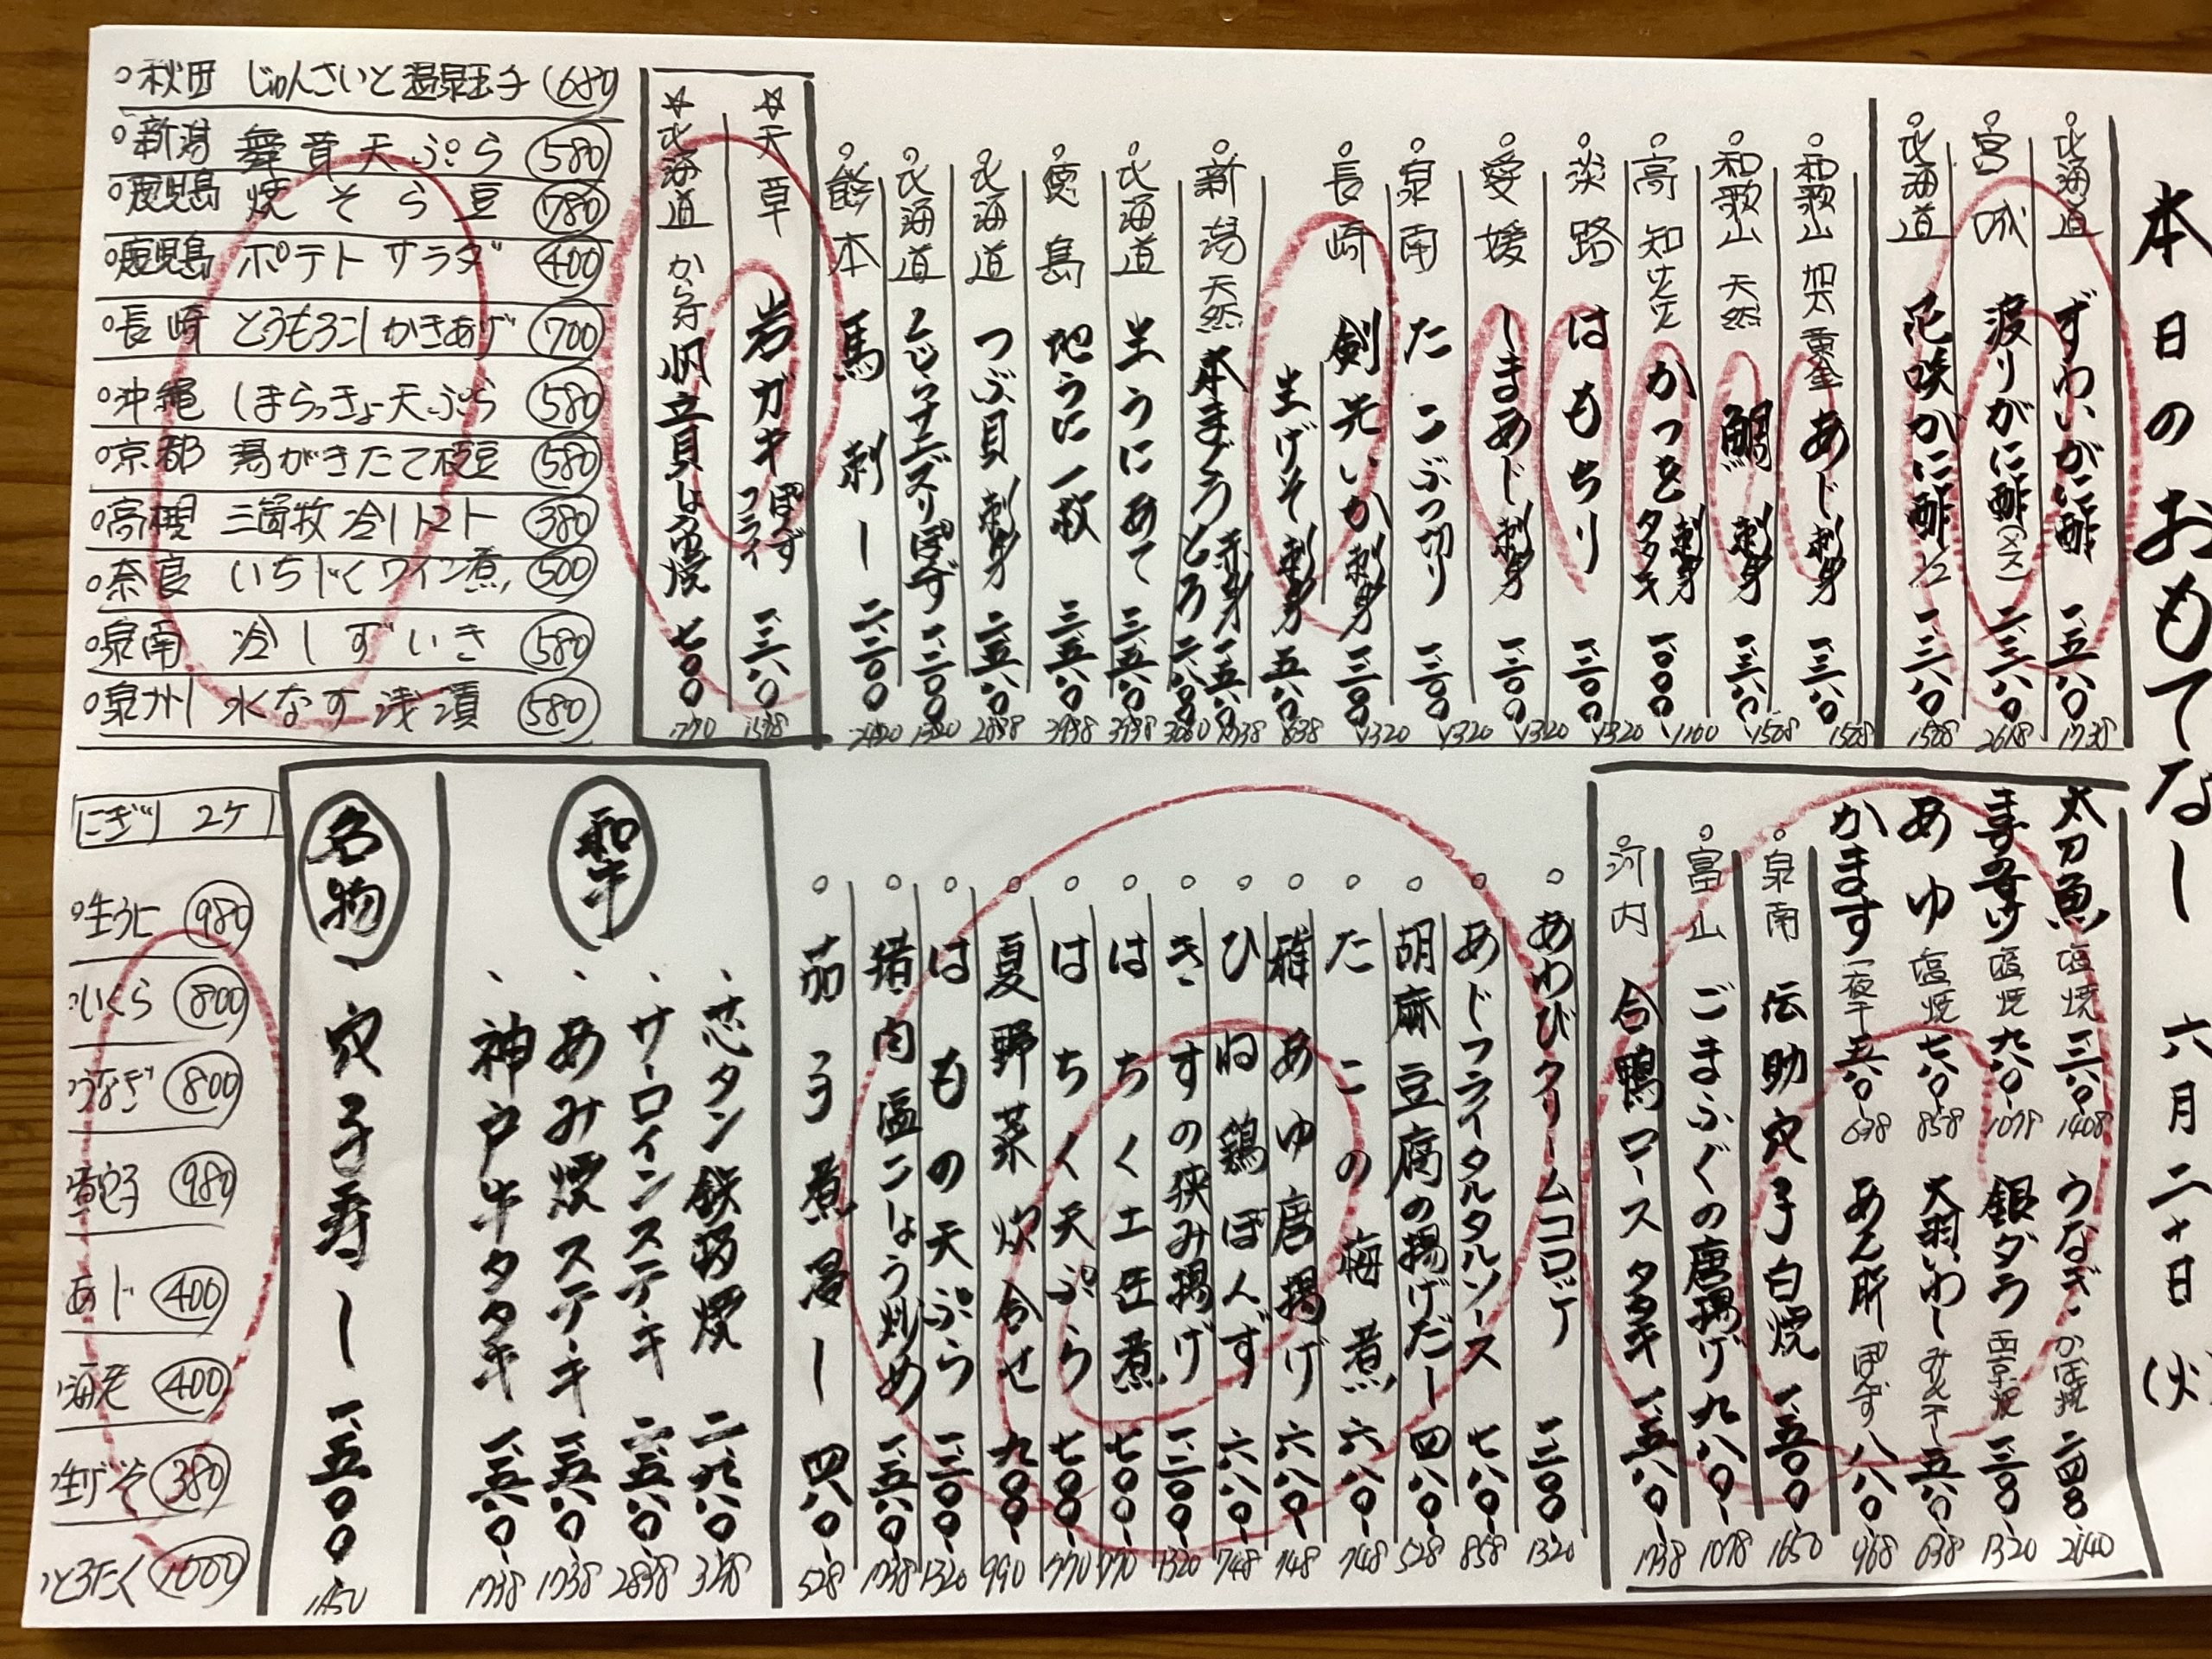 本日のおもてなし 六月二十日(火)
北海道 ずわいがに酢 一、五八〇 1738
宮城 渡りがに酢(メス) 二、三八〇 2618
北海道 花咲がに酢 1/2 一、三八〇 1508
和歌山 加太 あじ刺身 一、三八〇 1508
和歌山 天然 鯛 刺身 一、三八〇 1508
高知 かつを 刺身 タタキ 一、000 1100
淡路 はもちり 一、二00 1320
愛媛 しまあじ刺身 一、二00 1320
泉南 たこぶつ切り 一、二00 1320
長崎 剣先いか刺身 一、二00 1320
生げそ刺身 五八〇 638
新潟 天然 本まぐろ 赤身 一、五八〇 1738
とろ 二、八00 3080
北海道 生うにあて 三、五八〇 3938
徳島 地うに一枚 三、五八〇 3938
北海道 つぶ貝刺身 二、五八〇 2838
北海道 ぽんず 一、二00 1320
熊本 馬刺し 二、二00 2420
☆天草 岩ガキ ぽんず フライ 一、三八〇 1508
☆北海道 から付 帆立貝しょうゆ焼 七00 770
秋田 じゅんさいと温泉玉子 680
新潟 舞茸天ぷら 580
鹿児島 焼そら豆 780
鹿児島 ポテトサラダ 400
長崎 とうもろこしかきあげ 700
沖縄 しまらっきょ天ぷら 580
京都 湯がきたて枝豆 580
高槻 三箇牧冷しトマト 380
奈良 いちじくワイン煮 500
泉南 冷しずいき 580
泉州 水なす浅漬 580
太刀魚 塩焼 一、二八〇 1408
うなぎ かば焼 二、四00 2640
塩焼 九八〇 1078
銀ダラ 西京焼 一、二00 1320
あゆ 塩焼 七八〇 858
大羽いわし 五八〇 638
かます 一夜干 五八〇 638
あん肝 ぽんず 八八〇 968
泉南 伝助穴子白焼 一、五00 1650
富山 ごまふぐの唐揚げ 九八〇 1078
河内 合鴨ロースタタキ 一、五八〇 1738
あわびクリームコロッケ 一、二00 1320
あじフライタルタルソース 七八〇 858
胡麻豆腐の揚げだし 四八〇 528
たこの梅煮 六八〇 748
稚あゆ唐揚げ 六八〇 748
ひね鶏ぽんず 六八〇 748
きすの挟み揚げ 一、二00 1320
はちく土佐煮 七00 770
はちく天ぷら 七00 770
夏野菜炊合せ 九00 990
はもの天ぷら 一、二00 1320
猪肉塩こしょう炒め 一、五八〇 1738
茄子煮浸し 四八〇 528
和牛
芯タン鉄板焼 二、九八〇 3278
サーロインステーキ 二、五八〇 2838
あみ焼ステーキ 一、五八〇 1738
神戸牛タタキ 一、五八〇 1738
名物
穴子寿し 一、五00 1650
にぎり 2ケ
生うに 980
いくら 800
うなぎ 800
980
あじ 400
海老 400
生げそ 380
とろたく 1000